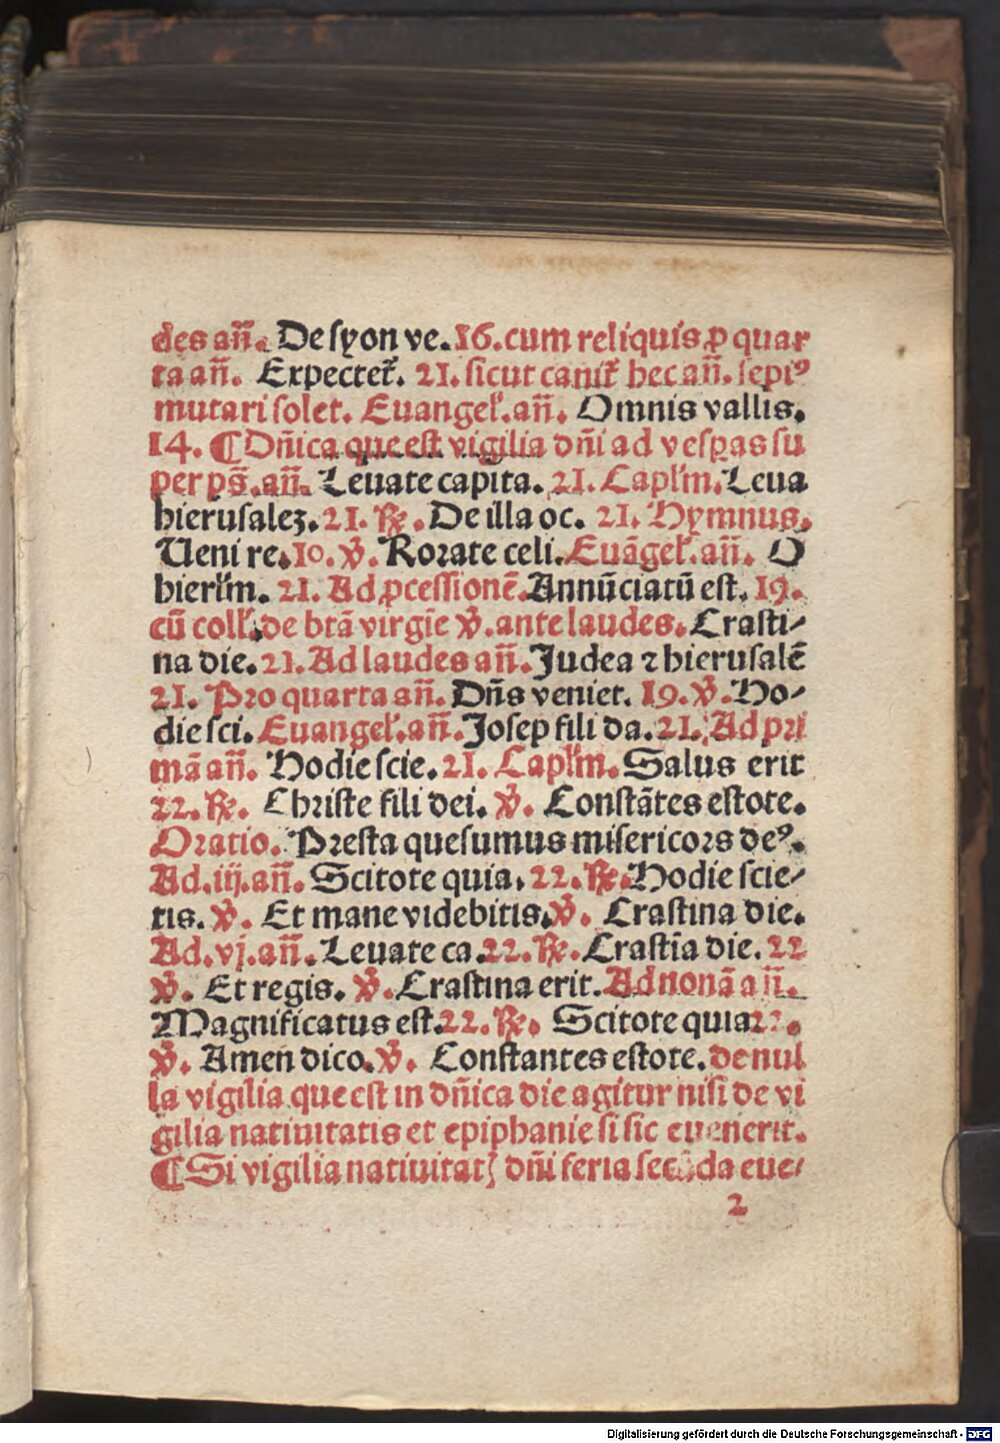 des an̄. De syon ve. 16. cum reliquis. ꝓ quar
ta an̄. Expectet᷑. 21. sicut canit᷑ hec an̄. sepi⁹
mutari solet. Euangel᷑. an̄. Omnis vallis.
14. ¶ Dn̄ica que est vigilia dn̄i ad vesꝑas su
per ps̄. an̄. Leuate capita. 21. Capl᷑m. Leua
hierusaleꝫ. 21. ℞. De illa oc. 21. Hymnus.
Ueni re. 10. ℣. Rorate celi. Euāgel᷑. an̄. O
hierl᷑m. 21. Ad ꝓcessionē. Annūciatū est. 19.
cū coll᷑. de btā virgīe ℣. ante laudes. Crasti⸗
na die. 21. Ad laudes an̄. Judea ⁊ hierusalē
21. Pro quarta an̄. Dn̄s veniet. 19. ℣. Ho⸗
die sci. Euangel᷑. an̄. Josep fili da. 21. Ad pri
mā an̄. Hodie scie. 21. Capl᷑m. Salus erit
22. ℞. Christe fili dei. ℣. Constātes estote.
Oratio. Presta quesumus misericors de⁹.
Ad. iij. an̄. Scitote quia. 22. ℞. Hodie scie⸗
tis. ℣. Et mane videbitis. ℣. Crastina die.
Ad. vj. an̄. Leuate ca. 22. ℞. Crastīa die. 22
℣. Et regis. ℣. Crastina erit. Ad nonā an̄.
Magnificatus est. 22. ℞. Scitote quia 22.
℣. Amen dico. ℣. Constantes estote. de nul
la vigilia que est in dn̄ica die agitur nisi de vi
gilia natiuitatis et epiphanie si sic euenerit.
¶ Si vigilia natiuitatꝭ dn̄i feria secūda eue⸗
2
Digitalisierung gefördert durch die Deutsche Forschungsgemeinschaft - DFG